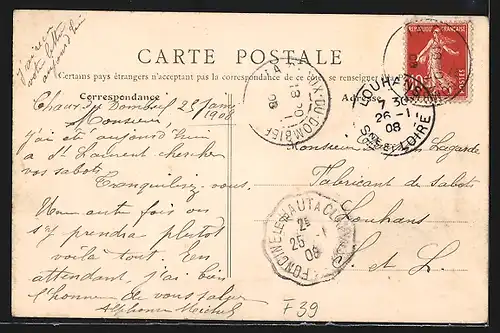 J'ai reçu
votre lettre
aujourd'hui
CARTE POSTALE
(Certains pays étrangers n'acceptant pas la correspondance de ce côté, se renseigner
Correspondance
Adresse
REPUBLIQUE FRANÇAISE
POSTES
LOUHANS
7 30
26 - 1
08
SAÔNE-ET-LOIRE
Chaux du Dombief 25 Janv
1908
Monsieur,
J'ai été aujourd'hui
a St Laurent chercher
vos sabots
Tranquilisez-vous.
Une autre fois on
s'y prendra plutot
voilà tout. En
attendant, j'ai bien
l'honneur de vous saluer
Alphonse Michel
Monsieur Lagarde
Fabricant de sabots
Louhans
S. et L.
FONCINE-LE-HAUT A CL
2E
25 - 1
08
F39